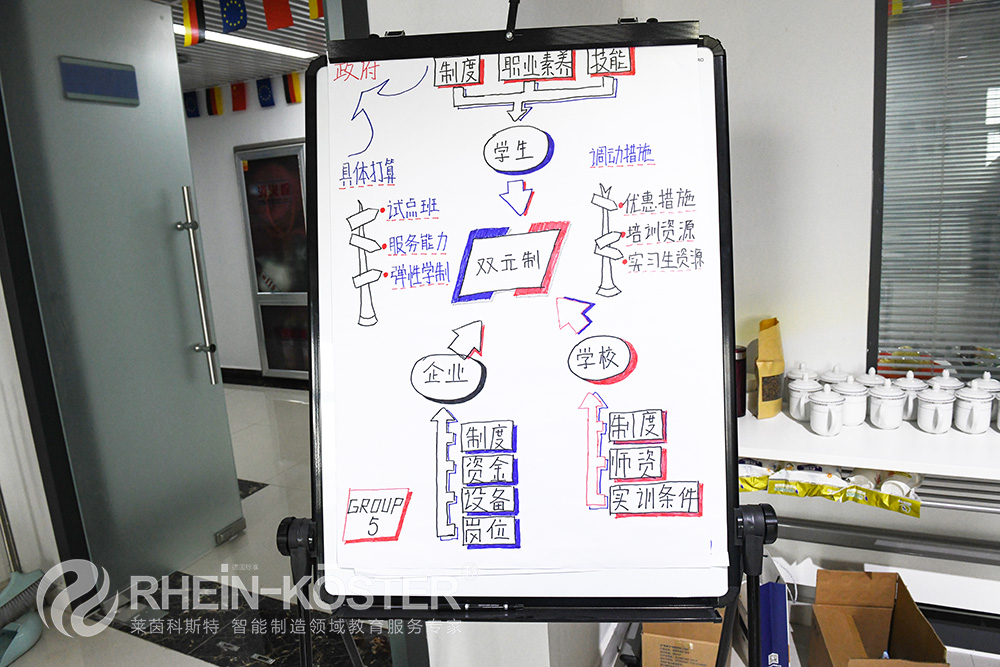 政府
制度
职业素养
技能
学生
具体打算
调动措施
试点班
服务能力
弹性学制
优惠措施
培训资源
实习生资源
双元制
企业
学校
制度
资金
设备
岗位
制度
师资
实训条件
GROUP
5
RHEIN-KÖSTER
莱茵科斯特 智能制造领域教育服务专家